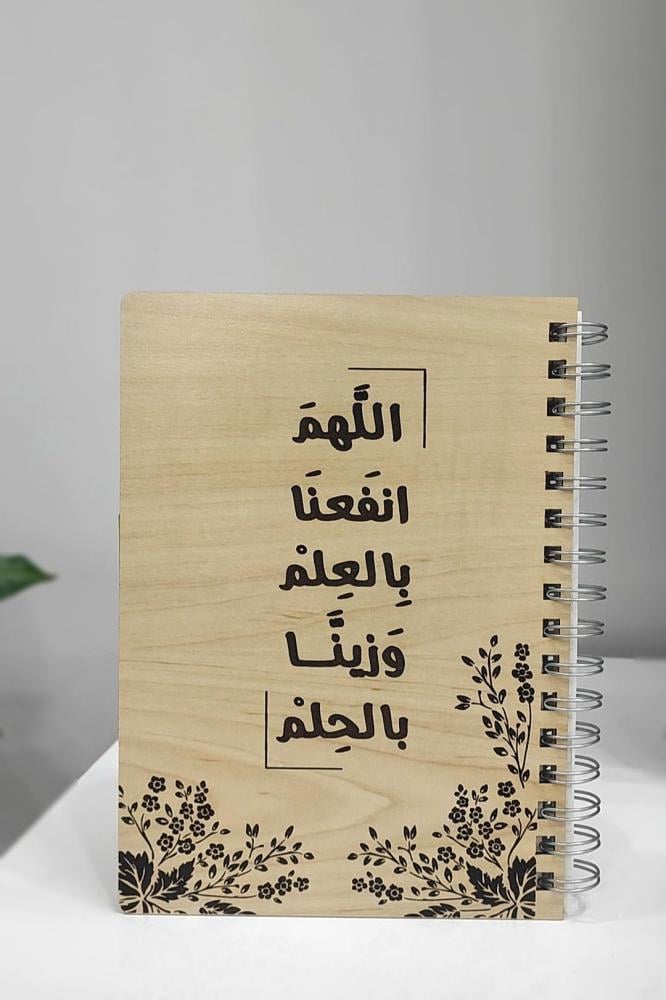 اللَّهمَ
انفَعنَا
بِالعِلمْ
وَزينَّـا
بالحِلمْ